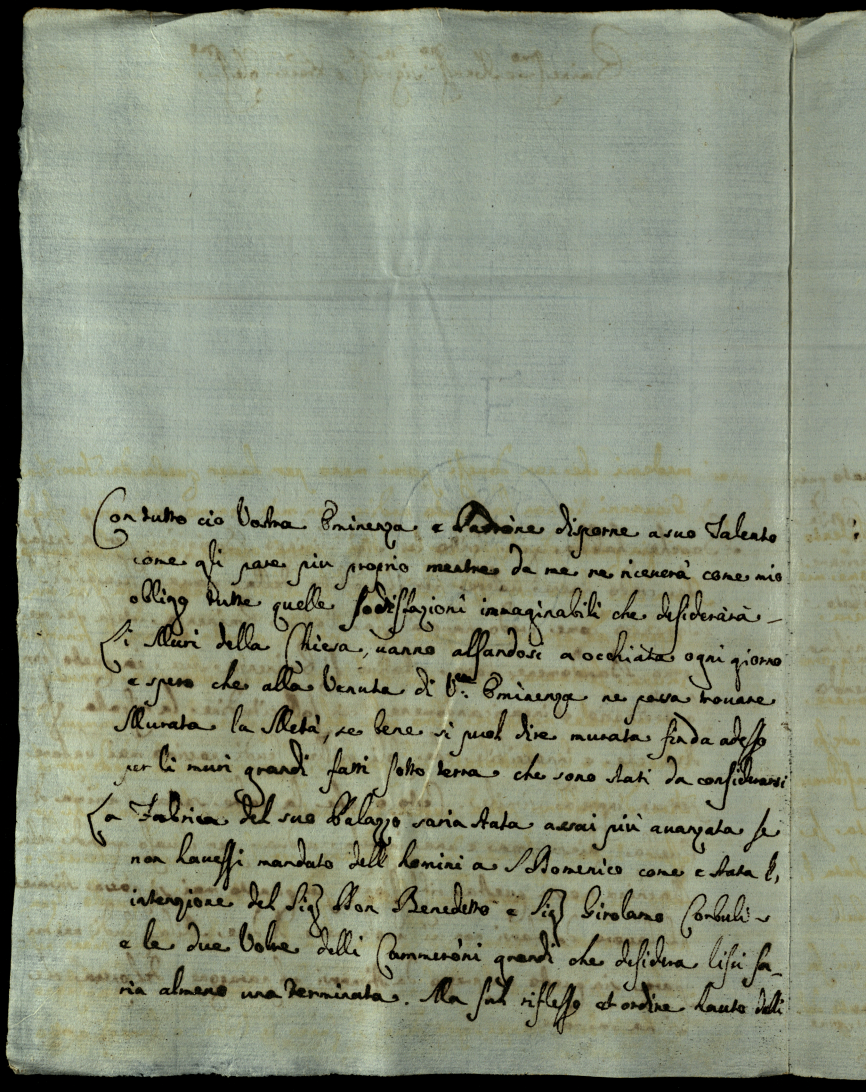 Con tutto cio Vostra Eminenza e Padrone disporne a suo Talento
come gli pare piu proprio mentre da me ne riceverà come mio
obligo tutte quelle sodisfazioni immaginabili che desiderarà –
Li Muri della Chiesa, vanno alsandosi a occhiata ogni giorno
e spero che alla Venuta di V.ra Eminenza ne possa trovare
Murata la Metà, se bene si puol dire murata fin da adesso
per li muri grandi fatti sotto terra che sono stati da considerarsi
La Fabrica del suo Palazzo saria stata assai più avanzata se
non havessi mandato dell homini a S Domenico come e stata l,
intenzione del Sig Don Benedetto e Sig Girolamo Corbuli –
e le due Volte delli Cammeròni grandi che desidera lisci sa_
ria almeno una terminata. Ma sul riflesso et ordine hauto delli